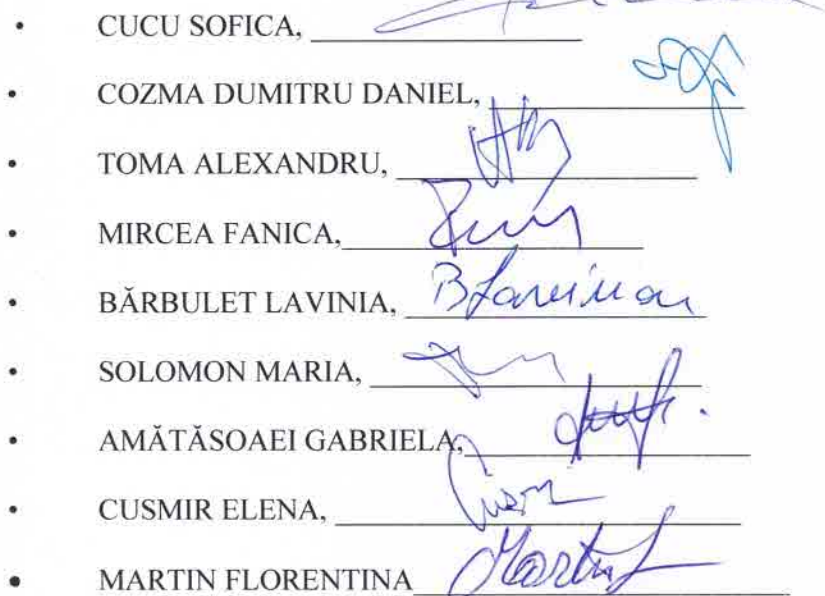 • CUCU SOFICA,
• COZMA DUMITRU DANIEL,
• TOMA ALEXANDRU,
• MIRCEA FANICA,
• BĂRBULET LAVINIA, BLavinia
• SOLOMON MARIA,
• AMĂTĂSOAEI GABRIELA,
• CUSMIR ELENA,
• MARTIN FLORENTINA Martin